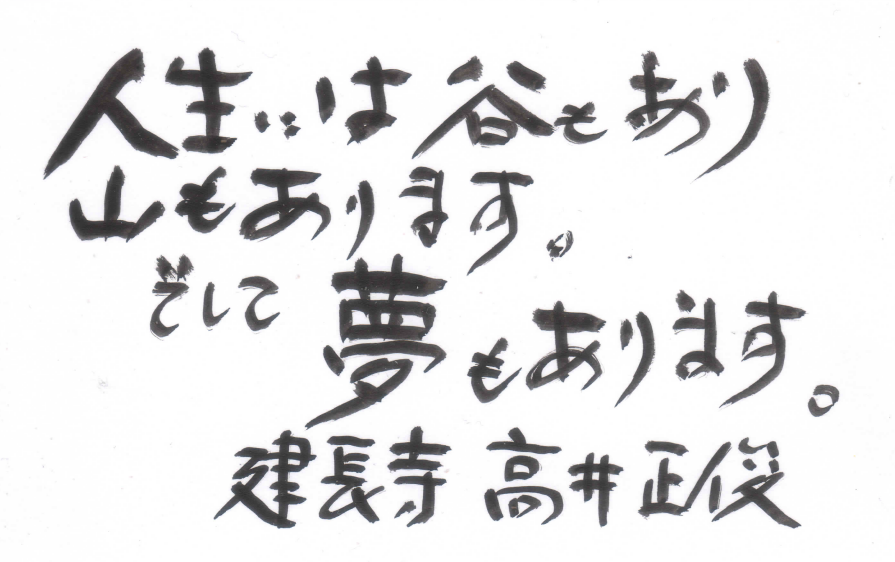 人生には谷もあり
山もあります。
そして夢もあります。
建長寺 高井正俊